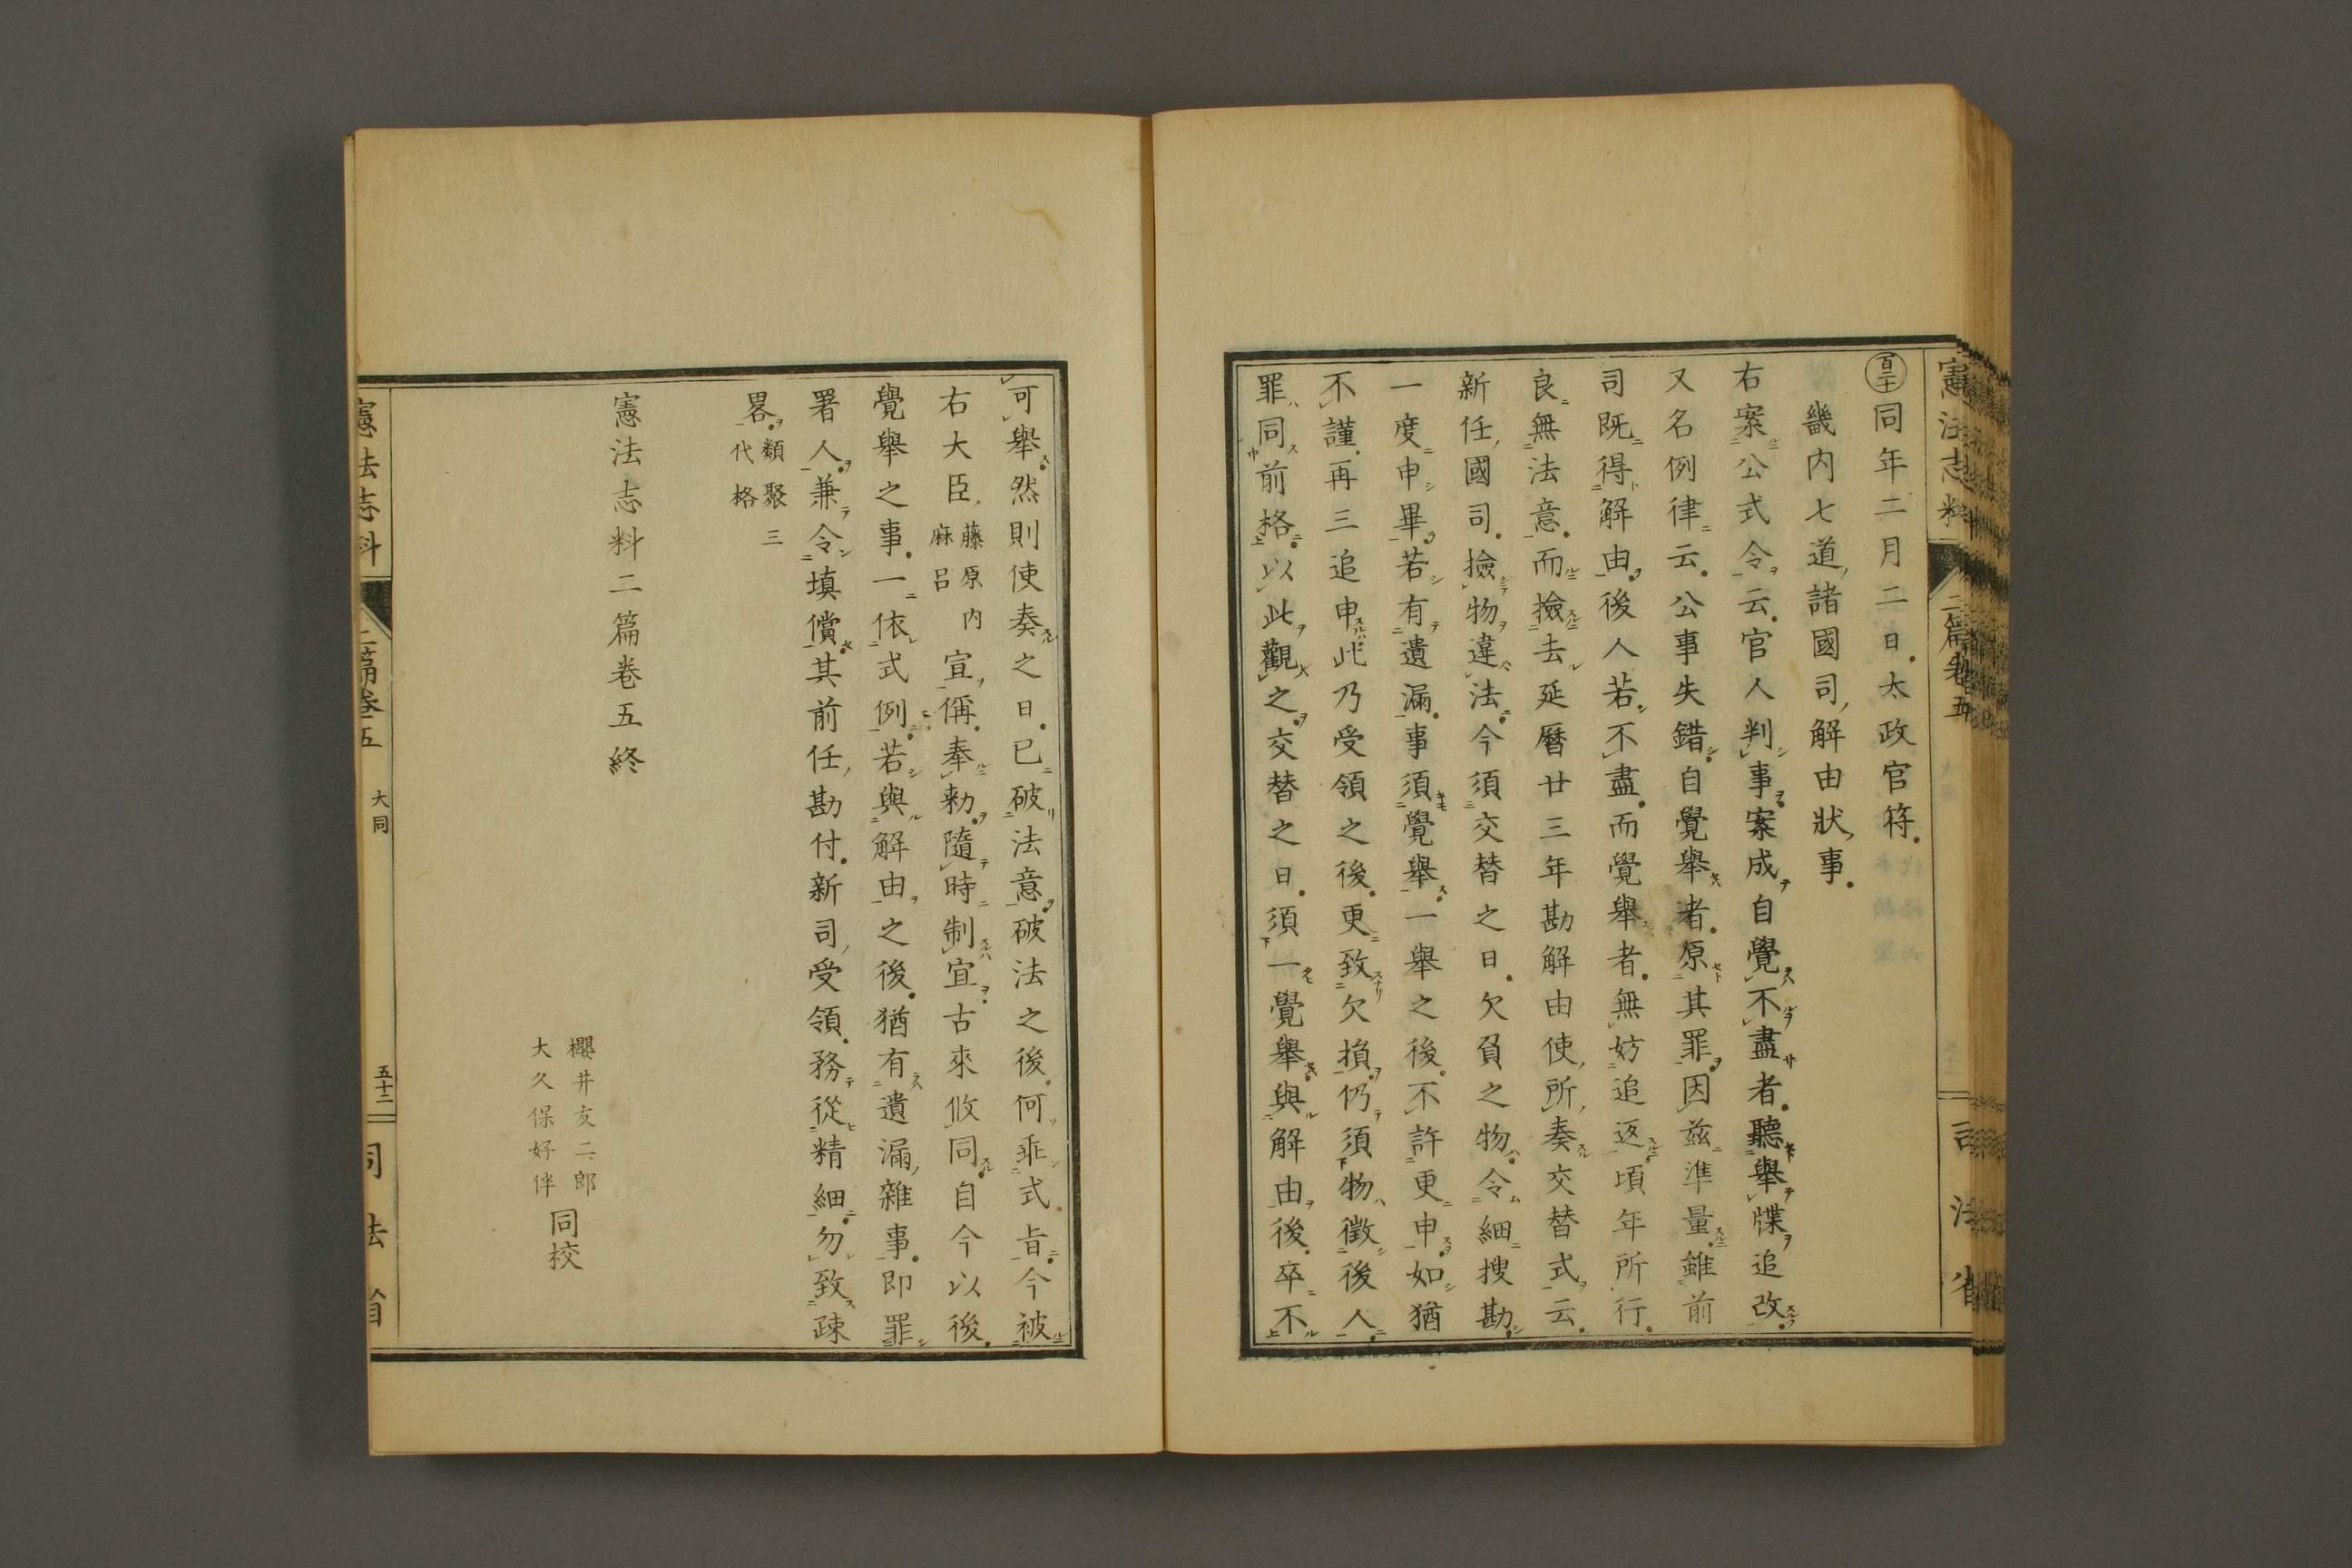 憲法志料
二篇卷五
司法省
百二十
同年二月二日。太政官符。
畿内七道諸國司解由狀事。
右案公式令云。官人判事案成自覺不盡者。聽舉牒追改。
又名例律云。公事失錯自覺舉者。原其罪。因茲準量。雖前
司既得解由。後人若不盡。而覺舉者。無妨追返。頃年所行。
良無法意。而撿去延曆廿三年勘解由使所奏交替式云。
新任國司。撿物違法。今須交替之日。欠負之物。令細搜勘。
一度申畢。若有遺漏。事須覺舉。一舉之後。不許更申。如猶
不謹。再三追申。此乃受領之後。更致欠損。仍須物徵後人。
罪同前格。以此觀之。交替之日。須一覺舉。與解由後。卒不
可舉。然則使奏之日。已破法意。破法之後。何乖式旨。今被
右大臣藤原内麻呂宣稱。奉勅。隨時制宜。古來攸同。自今以後。
覺舉之事。一依式例。若與解由之後。猶有遺漏雜事。即罪
署人。兼令填償。其前任勘付。新司受領。務從精細。勿致疎
畧。類聚三代格
憲法志料二篇卷五終
櫻井友二郎
大久保好伴
同校
憲法志料
二篇卷五
大同
五十二
司法省